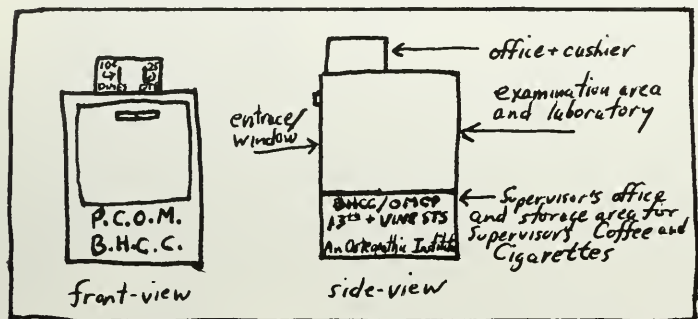 10¢ 25
Dimes
P.C.O.M.
B.H.C.C.
front-view
office + cashier
examination area
and laboratory
entrace/
window
BHCC/OMCP
13th + VINE STS
An Osteopathic Institute
Supervisor's office
and storage area for
Supervisor's Coffee and
Cigarettes
side-view